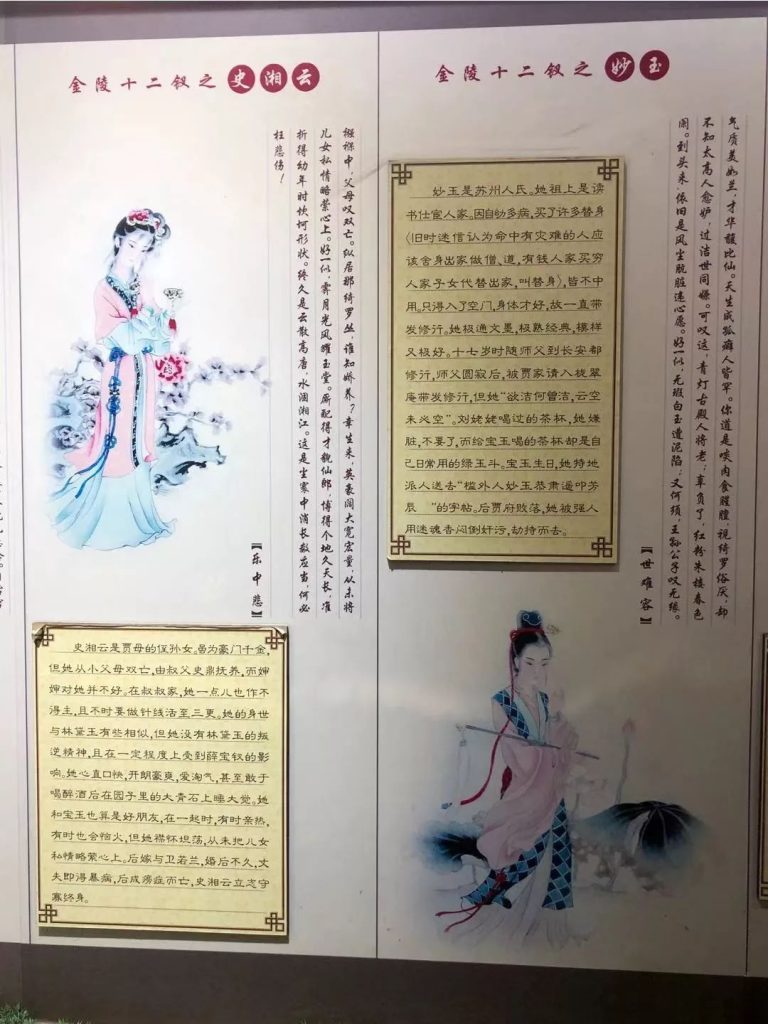 金陵十二钗之史湘云
襁褓中,父母叹双亡。纵居那绮罗丛,谁知娇养?幸生来,英豪阔大宽宏量,从未将
儿女私情略萦心上。好一似,霁月光风耀玉堂。厮配得才貌仙郎,博得个地久天长,准
折得幼年时坎坷形状。终久是云散高唐,水涸湘江。这是尘寰中消长数应当,何必
枉悲伤!
【乐中悲】
史湘云是贾母的侄孙女。虽为豪门千金,
但她从小父母双亡,由叔父史鼎抚养,而婶
婶对她并不好。在叔叔家,她一点儿也作不
得主,且不时要做针线活至三更。她的身世
与林黛玉有些相似,但她没有林黛玉的叛
逆精神,且在一定程度上受到薛宝钗的影
响。她心直口快,开朗豪爽,爱淘气,甚至敢于
喝醉酒后在园子里的大青石上睡大觉。她
和宝玉也算是好朋友,在一起时,有时亲热,
有时也会恼火,但她襟怀坦荡,从未把儿女
私情略萦心上。后嫁与卫若兰,婚后不久,丈
夫即得暴病,后成痨症而亡,史湘云立志守
寡终身。
金陵十二钗之妙玉
气质美如兰,才华馥比仙。天生成孤癖人皆罕。你道是啖肉食腥膻,视绮罗俗厌,却
不知太高人愈妒,过洁世同嫌。可叹这,青灯古殿人将老;辜负了,红粉朱楼春色
阑。到头来,依旧是风尘肮脏违心愿。好一似,无瑕白玉遭泥陷;又何须,王孙公子叹无缘。
【世难容】
妙玉是苏州人氏。她祖上是读
书仕宦人家。因自幼多病,买了许多替身
(旧时迷信认为命中有灾难的人应
该舍身出家做僧、道,有钱人家买穷
人家子女代替出家,叫替身),皆不中
用。只得入了空门,身体才好,故一直带
发修行。她极通文墨,极熟经典,模样
又极好。十七岁时随师父到长安都
修行,师父圆寂后,被贾家请入栊翠
庵带发修行,但她“欲洁何曾洁,云空
未必空”。刘姥姥喝过的茶杯,她嫌
脏,不要了,而给宝玉喝的茶杯却是自
己日常用的绿玉斗。宝玉生日,她特地
派人送去“槛外人妙玉恭肃遥叩芳
辰 ”的字帖。后贾府败落,她被强人
用迷魂香闷倒奸污,劫持而去。